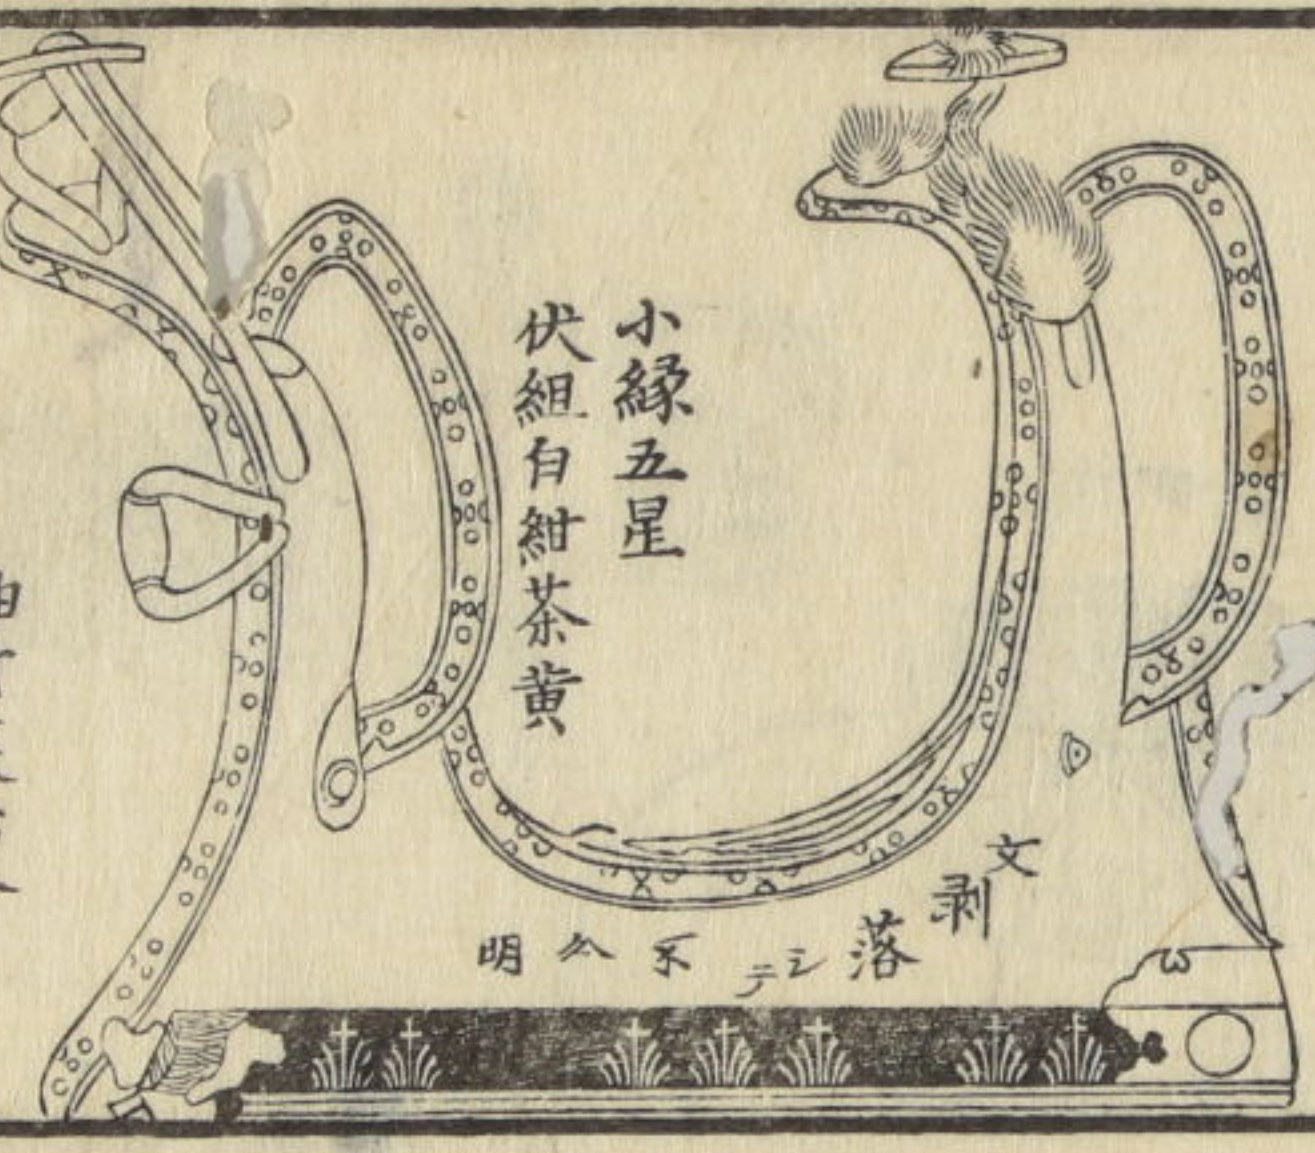 小縁五星
伏組白紺茶黄
文剥落シテ不分明